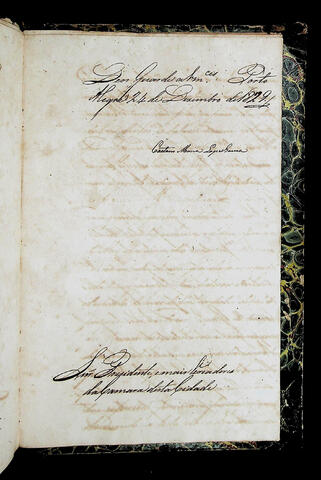 Deos Guarde a Vm.ces Porto
Alegre 24 de Dezembro de 1829
Caetano Maria Lopes Gama
Snr.s Prezidente, e mais Vereadores
da Camara desta Cidade